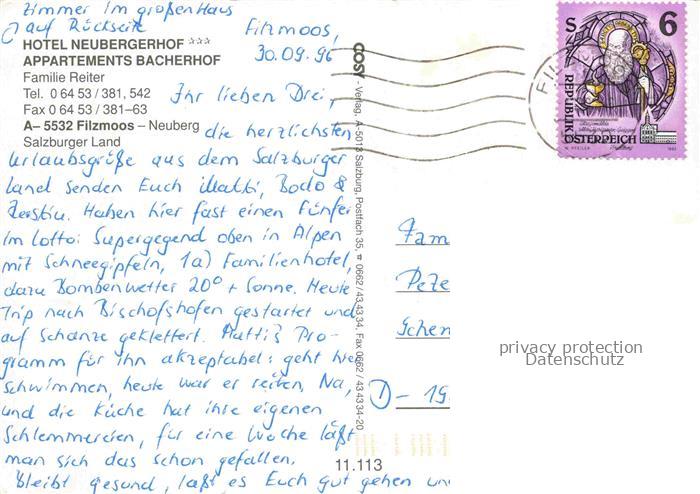 Zimmer im großen Haus
auf Rückseite
Filzmoos,
30.09.96
HOTEL NEUBERGERHOF ***
APPARTEMENTS BACHERHOF
Familie Reiter
Tel. 0 64 53 / 381, 542
Fax 0 64 53 / 381–63
A– 5532 Filzmoos – Neuberg
Salzburger Land
Ihr lieben Drei,
die herzlichsten
Urlaubsgrüße aus dem Salzburger
Land senden Euch Matti, Bodo &
Kerstin. Haben hier fast einen Fünfer
im Lotto: Supergegend oben in Alpen
mit Schneegipfeln, 1a) Familienhotel,
dazu Bombenwetter 20° + Sonne. Heute
Trip nach Bischofshofen gestartet und
auf Schanze geklettert. Matti's Pro-
gramm für ihn akzeptabel: geht hier
schwimmen, heute war er reiten. Na,
und die Küche hat ihre eigenen
Schlemmereien, für eine Woche läßt
man sich das schon gefallen.
Bleibt gesund, laßt es Euch gut gehen un
COSY - Verlag, A-5013 Salzburg, Postfach 35, ☎ 0662 / 43 43 34, Fax 0662 / 43 43 34-20
11.113
S 6
REPUBLIK
ÖSTERREICH
FIL
Fam
Pete
Schen
D - 19
privacy protection
Datenschutz